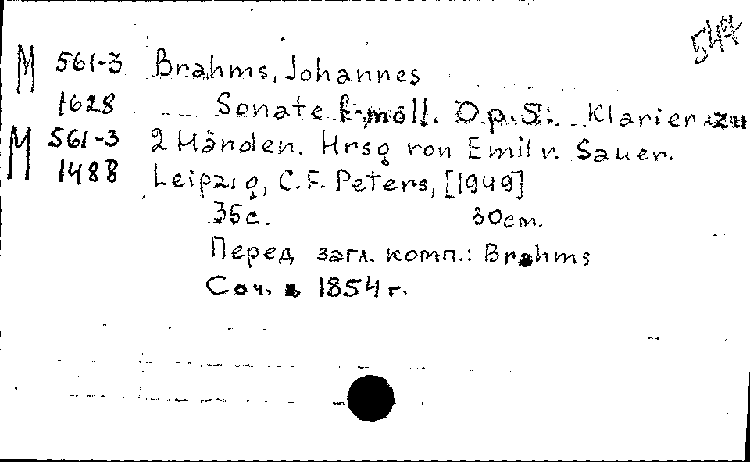 547
М 561-3 Brahms, Johannes
1628 Sonate f-moll. Op.5. Klavier zu
М 561-3 2 Händen. Hrsg von Emil v. Sauer.
1488 Leipzig, C.F. Peters, [1949]
35c. 30cm.
Перед загл. комп.: Brahms
Соч. в 1854 г.